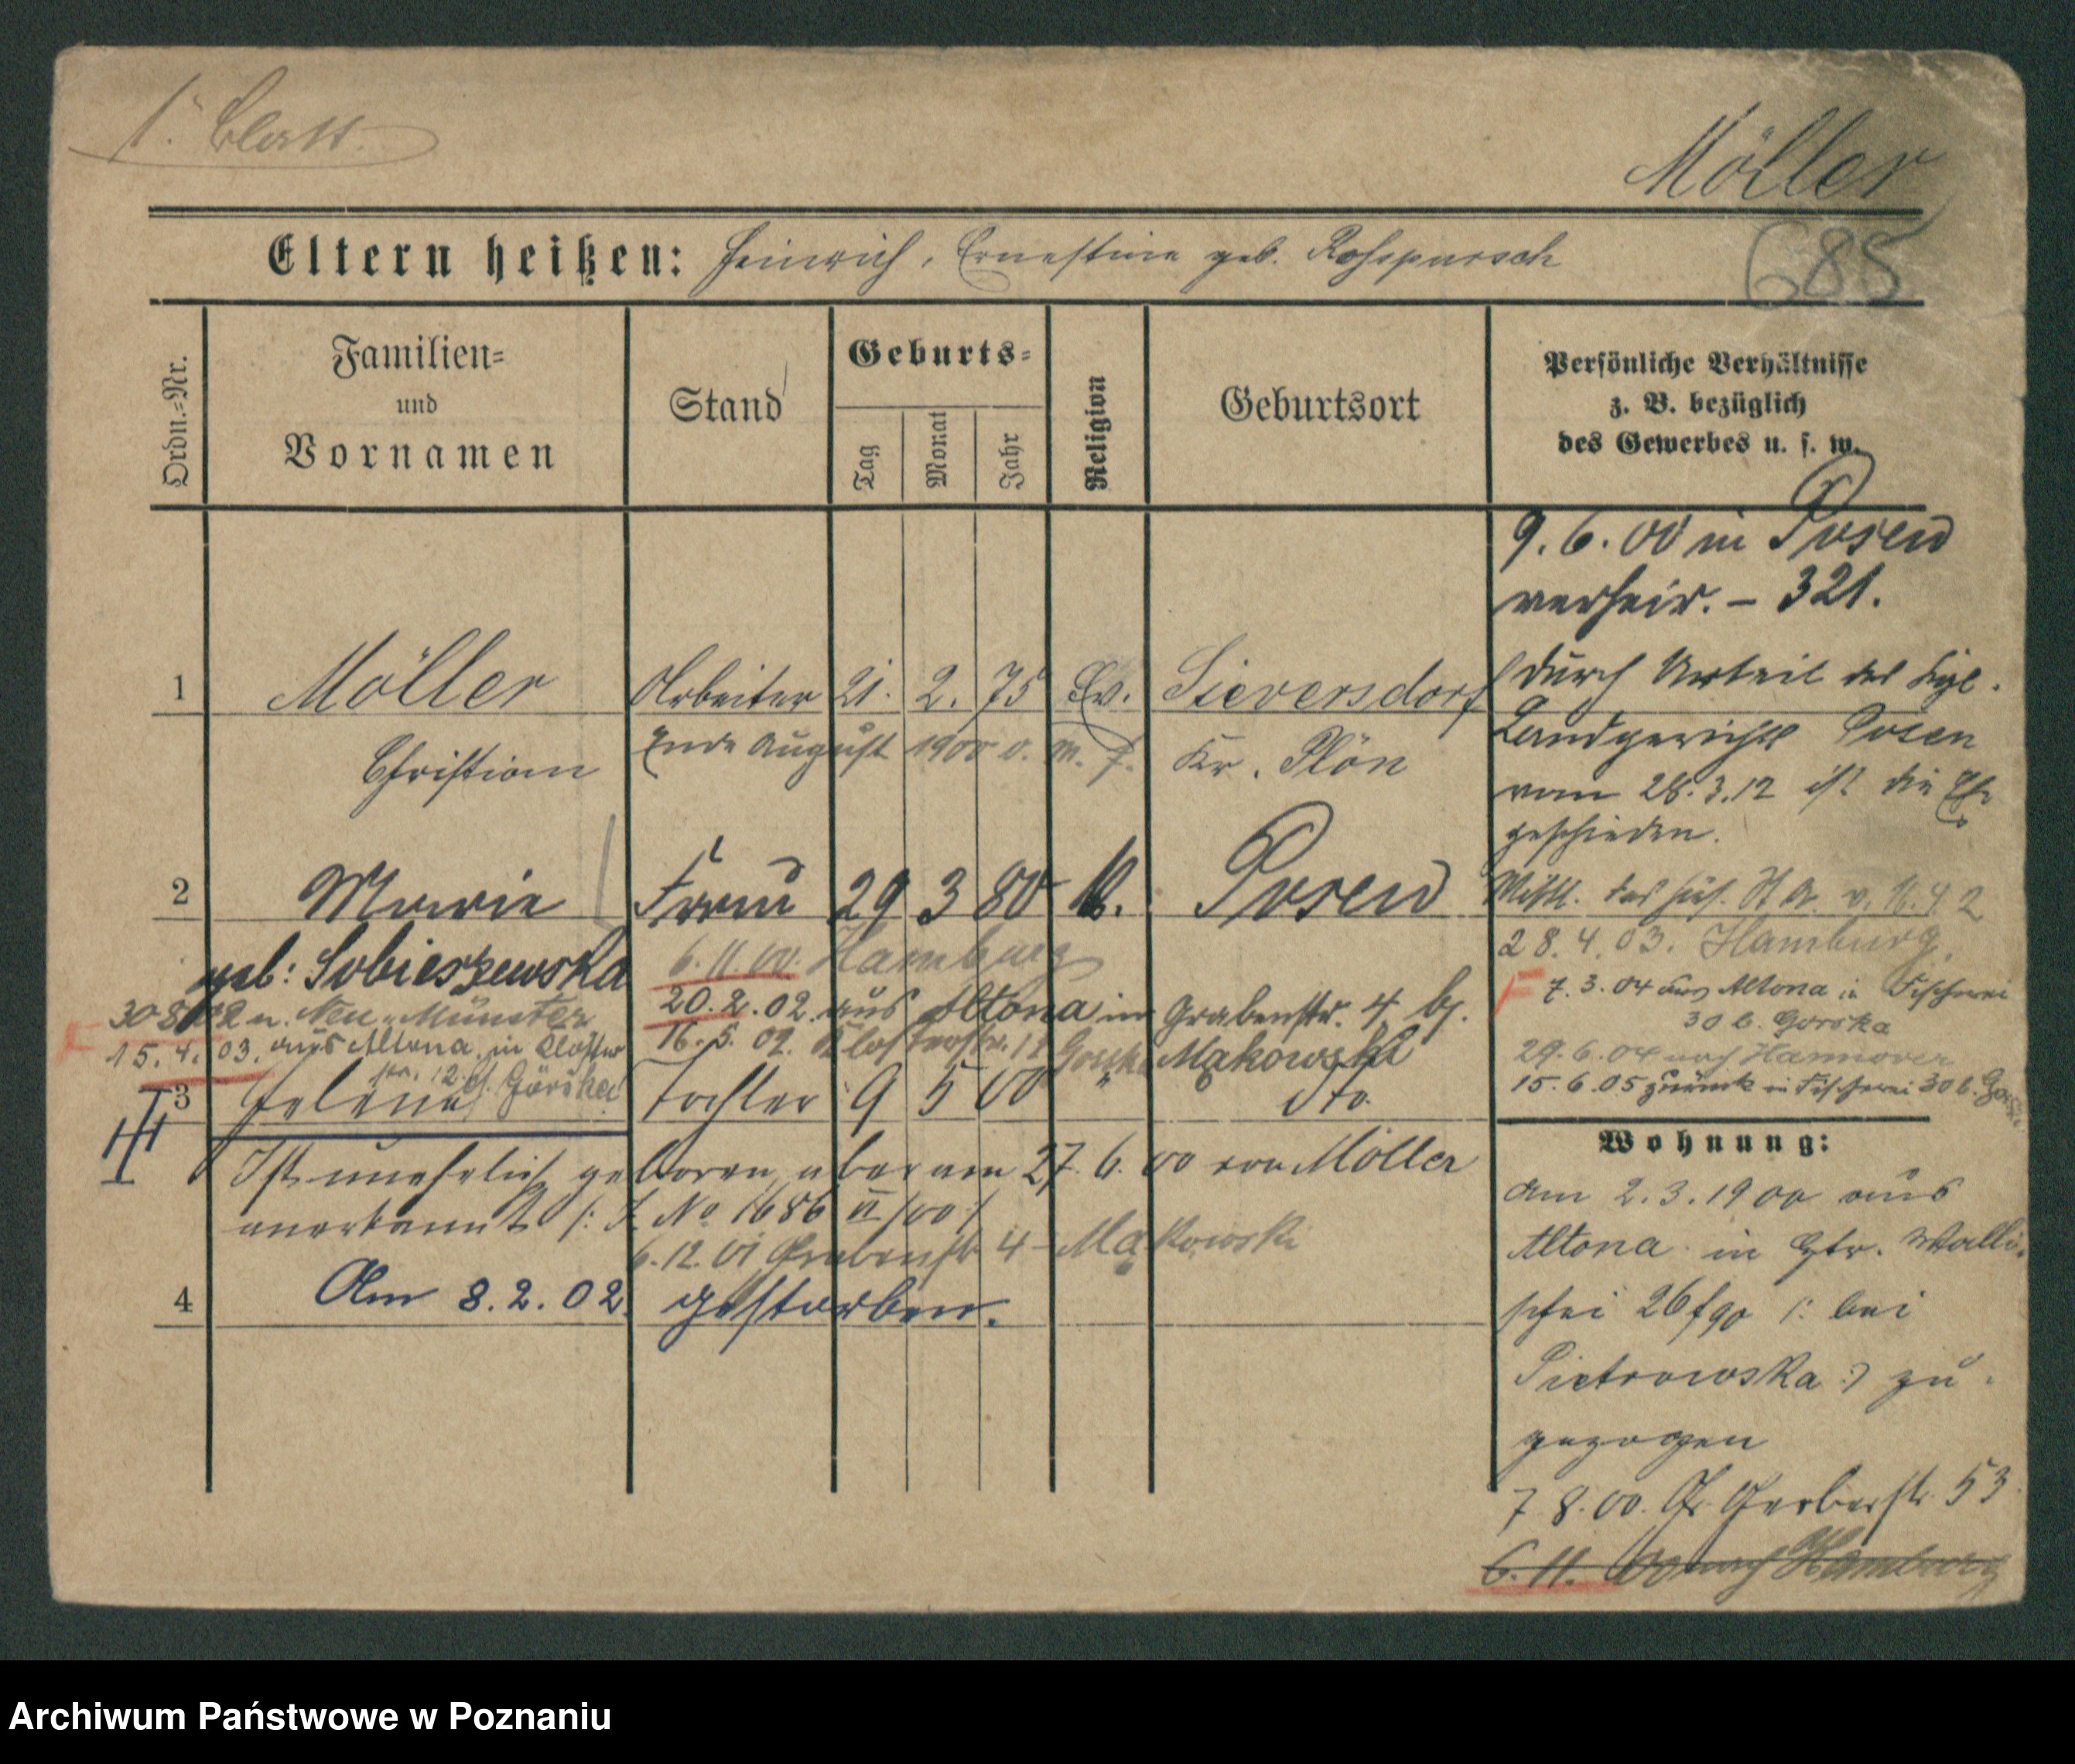 1. Blatt.
Möller
685
Eltern heißen: Heinrich, Ernestine geb.
Ordn.-Nr.
Familien-
und
Vornamen
Stand
Geburts-
Tag
Monat
Jahr
Religion
Geburtsort
Persönliche Verhältnisse
z. B. bezüglich
des Gewerbes u. s. w.
9. 6. 00 in Posen
verheir. – 321.
1 Möller Arbeiter 21. 2. 75 Ev. Sieversdorf
Christian Ende August 1900 Kr. Plön
durch Urteil des Kgl.
Landgerichts Posen
vom 28. 3. 12 ist die Ehe
geschieden.
2 Marie Frau 29 3 80 K. Posen
geb: Sobieszewska
6. 11. 00. Hamburg
20. 2. 02. aus Altona in Grabenstr. 4 bei
16. 5. 02. Klosterstr. 12 Makowski
n. Neu-Münster
15. 4. 03. aus Altona in Kloster
str. 12 Górska
28. 4. 03. Hamburg
7. 3. 04 aus Altona in Fischerei
30 b. Gorska
29. 6. 04 nach Hannover
15. 6. 05 zurück in Fischerei 30 b.
3 Helena Tochter 9 5 00 dto.
Ist unehelich geboren, aber am 27. 6. 00 von Möller
anerkannt /: J. No 1686 II/00 :/
6. 12. 01 Grabenstr. 4 – Makowski
4 Am 8. 2. 02. gestorben.
Wohnung:
Am 2. 3. 1900 aus
Altona in Gr. Walli-
schei 26 bei
Pietrowska :) zu-
gezogen
7 8. 00. Gr. Gerberstr. 53
6. 11. 00 nach Hamburg
Archiwum Państwowe w Poznaniu